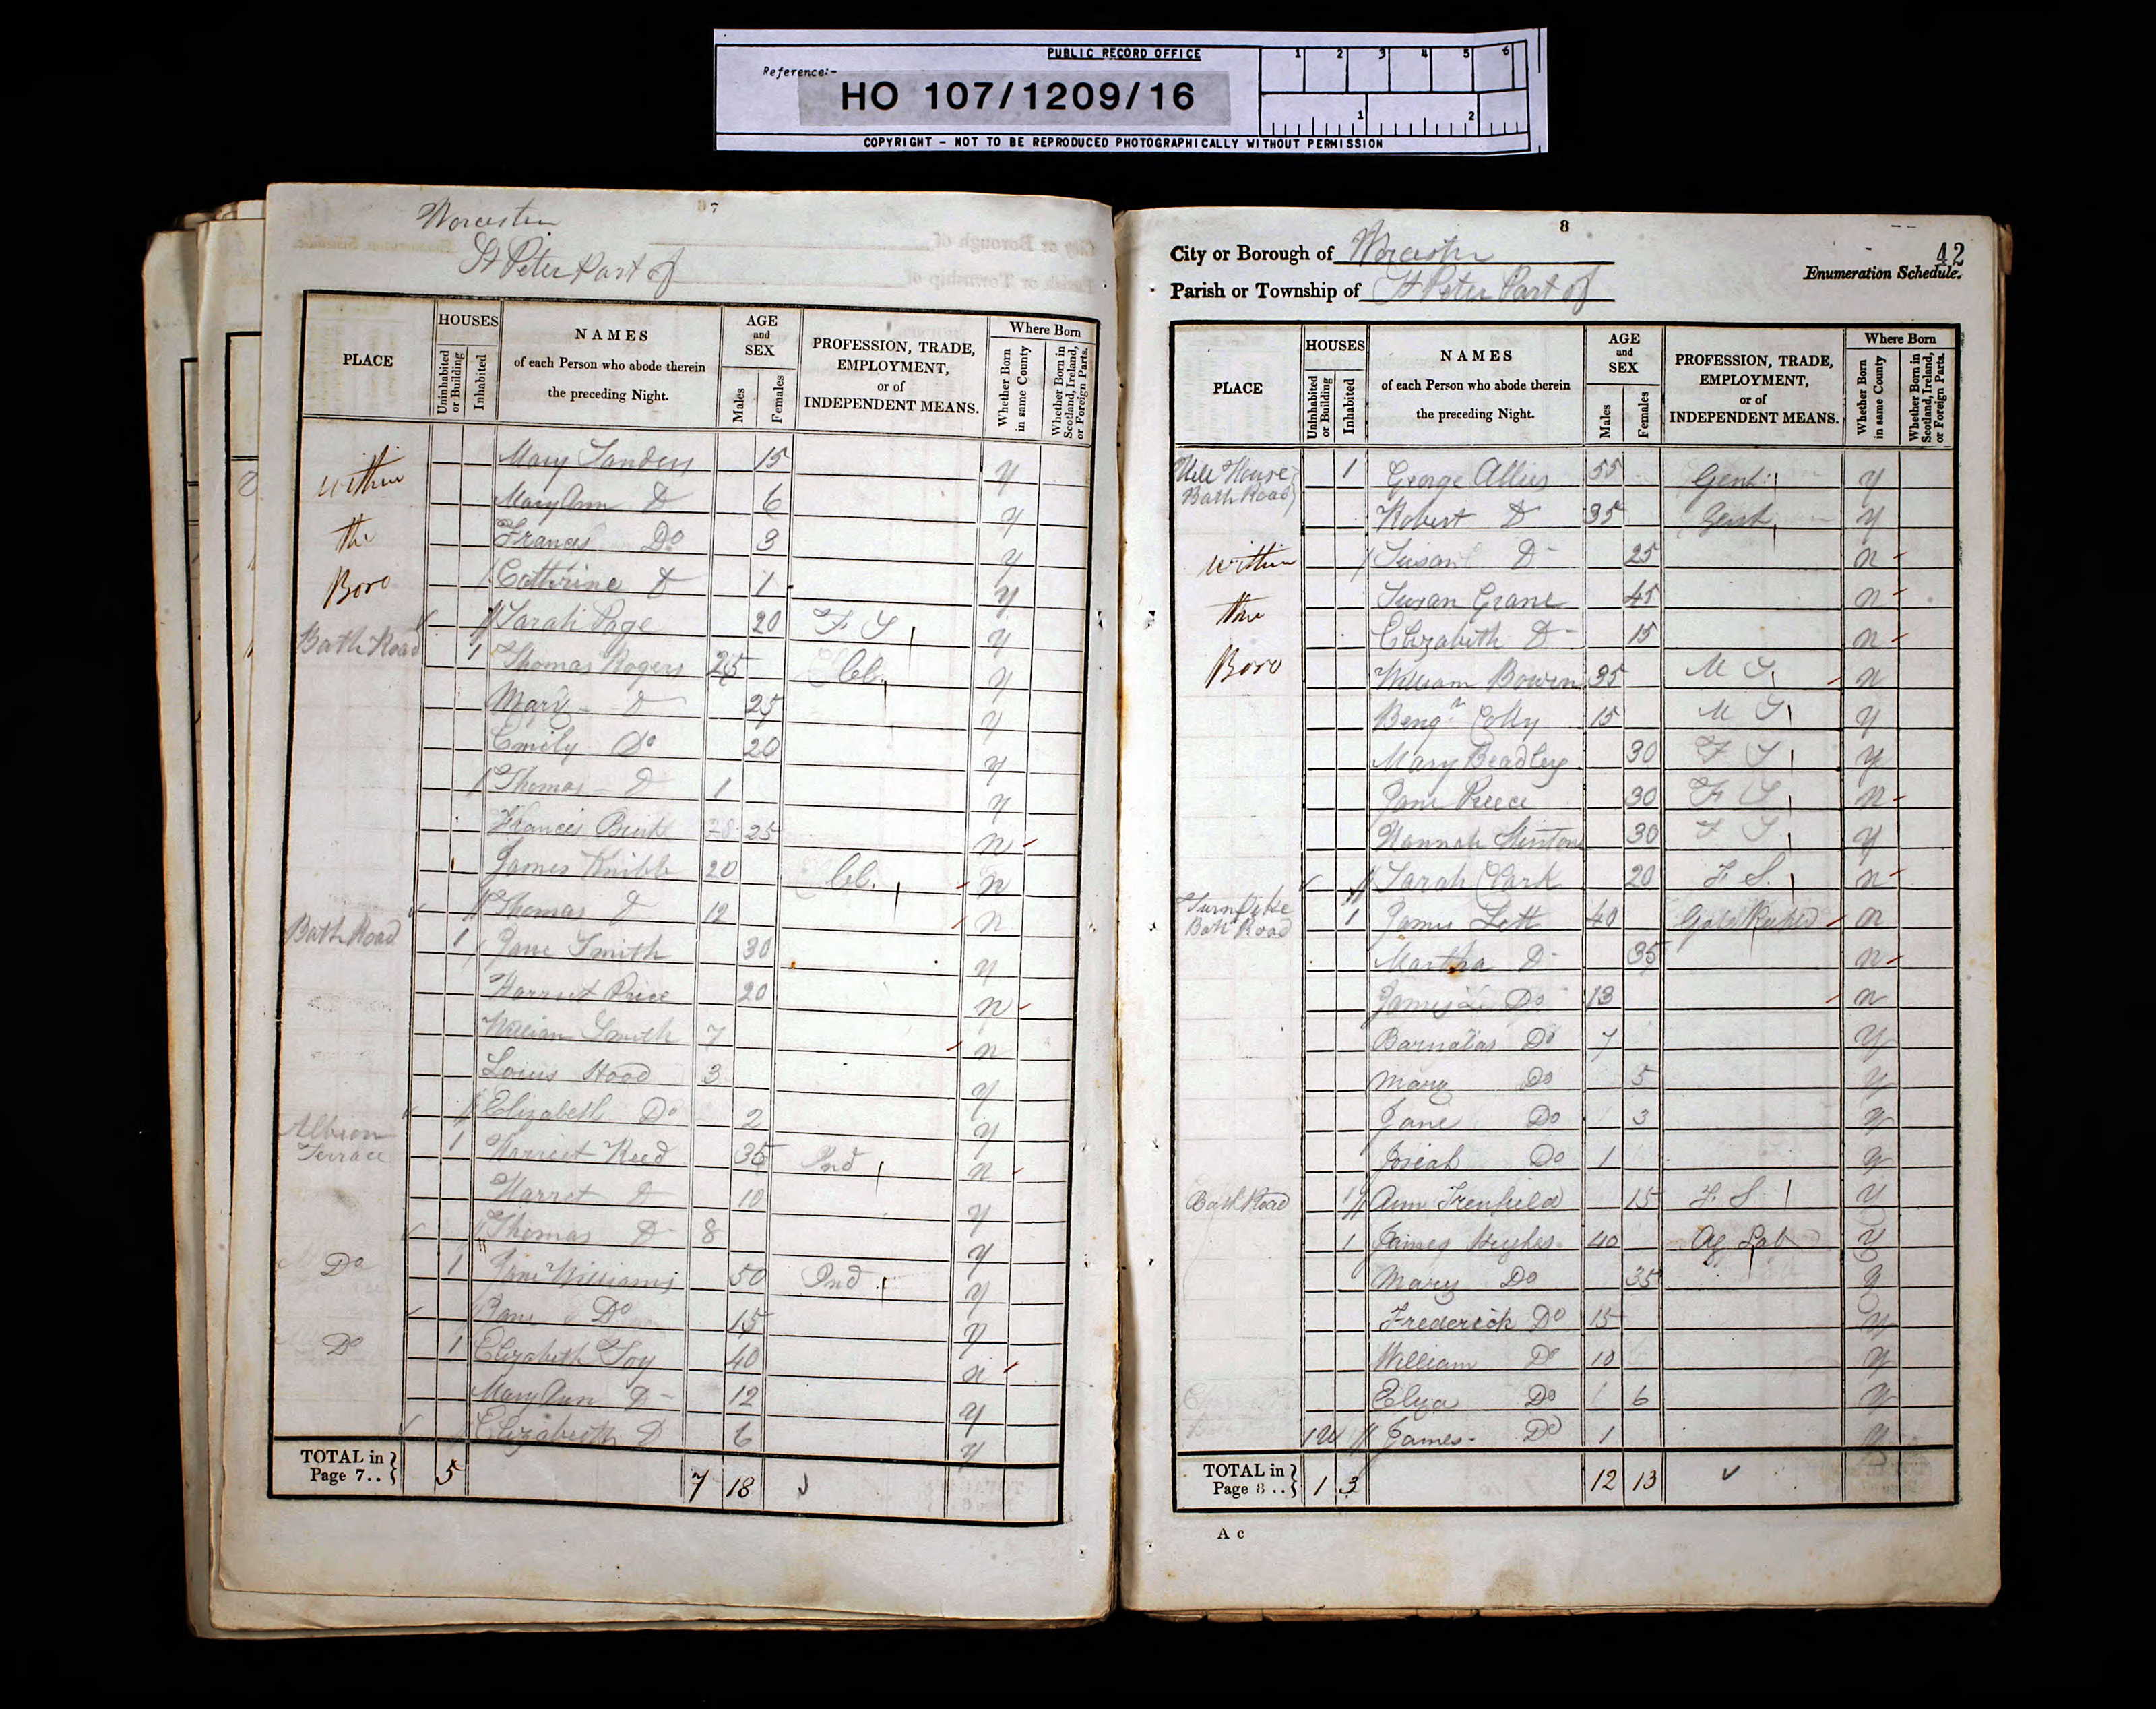 PUBLIC RECORD OFFICE
Reference:-
HO 107/1209/16
1 2 3 4 5 6
1 2
COPYRIGHT - NOT TO BE REPRODUCED PHOTOGRAPHICALLY WITHOUT PERMISSION
7
Worcester
St Peter Part of
PLACE
HOUSES
Uninhabited or Building
Inhabited
NAMES
of each Person who abode therein
the preceding Night.
AGE
and
SEX
Males
Females
PROFESSION, TRADE,
EMPLOYMENT,
or of
INDEPENDENT MEANS.
Where Born
Whether Born in same County
Whether Born in Scotland, Ireland, or Foreign Parts.
within Mary Sanders 15 y
Mary Ann Do 6 y
the Frances Do 3 y
Boro Cathrine Do 1 y
Sarah Page 20 F S y
Bath Road 1 Thomas Rogers 25 Cl. y
Mary Do 25 y
Emily Do 20 y
Thomas Do 1 y
Frances 25 n
James Knibb 20 Cl. n
Thomas Do 12 n
Bath Road 1 Jane Smith 30 y
Harriet Price 20 n
William Smith 7 n
Louis Hood 3 y
Elizabeth Do 2 y
Albion Terrace 1 Harriet Reed 35 Ind n
Harriot Do 10 y
Thomas Do 8 y
Do 1 Jane Williams 50 Ind y
Jane Do 15 y
Do 1 Elizabeth Toy 40 n
Mary Ann Do 12 y
Elizabeth D 6 y
TOTAL in Page 7.. } 5 7 18
8
42
City or Borough of Worcester
Enumeration Schedule.
Parish or Township of St Peter Part of
PLACE
HOUSES
Uninhabited or Building
Inhabited
NAMES
of each Person who abode therein
the preceding Night.
AGE
and
SEX
Males
Females
PROFESSION, TRADE,
EMPLOYMENT,
or of
INDEPENDENT MEANS.
Where Born
Whether Born in same County
Whether Born in Scotland, Ireland, or Foreign Parts.
House Bath Road 1 George Allies 55 Gent. y
Robert Do 35 Gent y
within Susan Do 25 n
the Susan Grane 45 n
Elizabeth Do 15 n
Boro William Bowen 35 M S n
Colly 15 M S y
Mary Beadley 30 F S y
Jane Preece 30 F S n
Hannah Hinton 30 F S y
Sarah Clark 20 F. S. n
Turnpike Bath Road 1 James Lett 40 Gate Keeper n
Martha Do 35 n
James Do 13 n
Barnabas Do 7 y
Mary Do 5 y
Jane Do 3 y
Josiah Do 1 y
Ann Trenfield 15 F. S y
Bath Road 1 James Hughes 40 Ag Lab y
Mary Do 35 y
Frederick Do 15 y
William Do 10 y
Eliza Do 6 y
1U James Do 1 y
TOTAL in Page 8.. } 1 3 12 13
A c